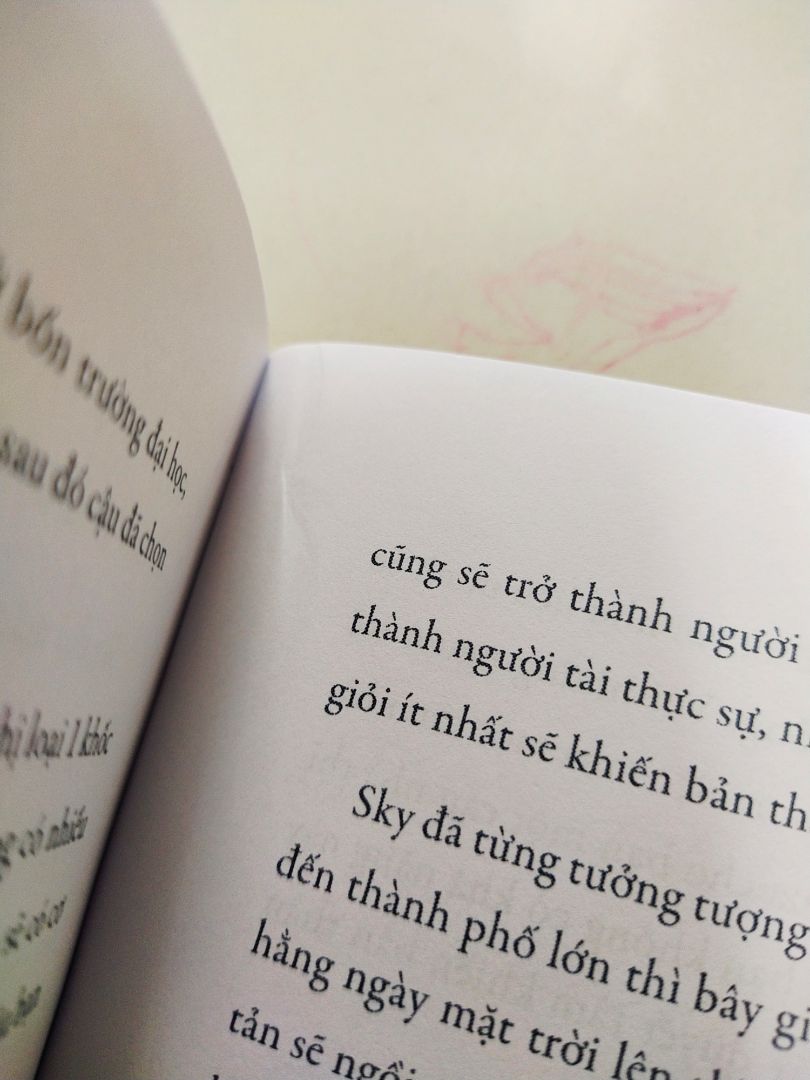 bốn trường đại học,
sau đó cậu đã chọn
loại 1 khóc
có nhiều
sẽ có cơ
cũng sẽ trở thành người
thành người tài thực sự,
giỏi ít nhất sẽ khiến bản
Sky đã từng tưởng tượng
đến thành phố lớn thì bây
hằng ngày mặt trời lên
tản sẽ ngồi